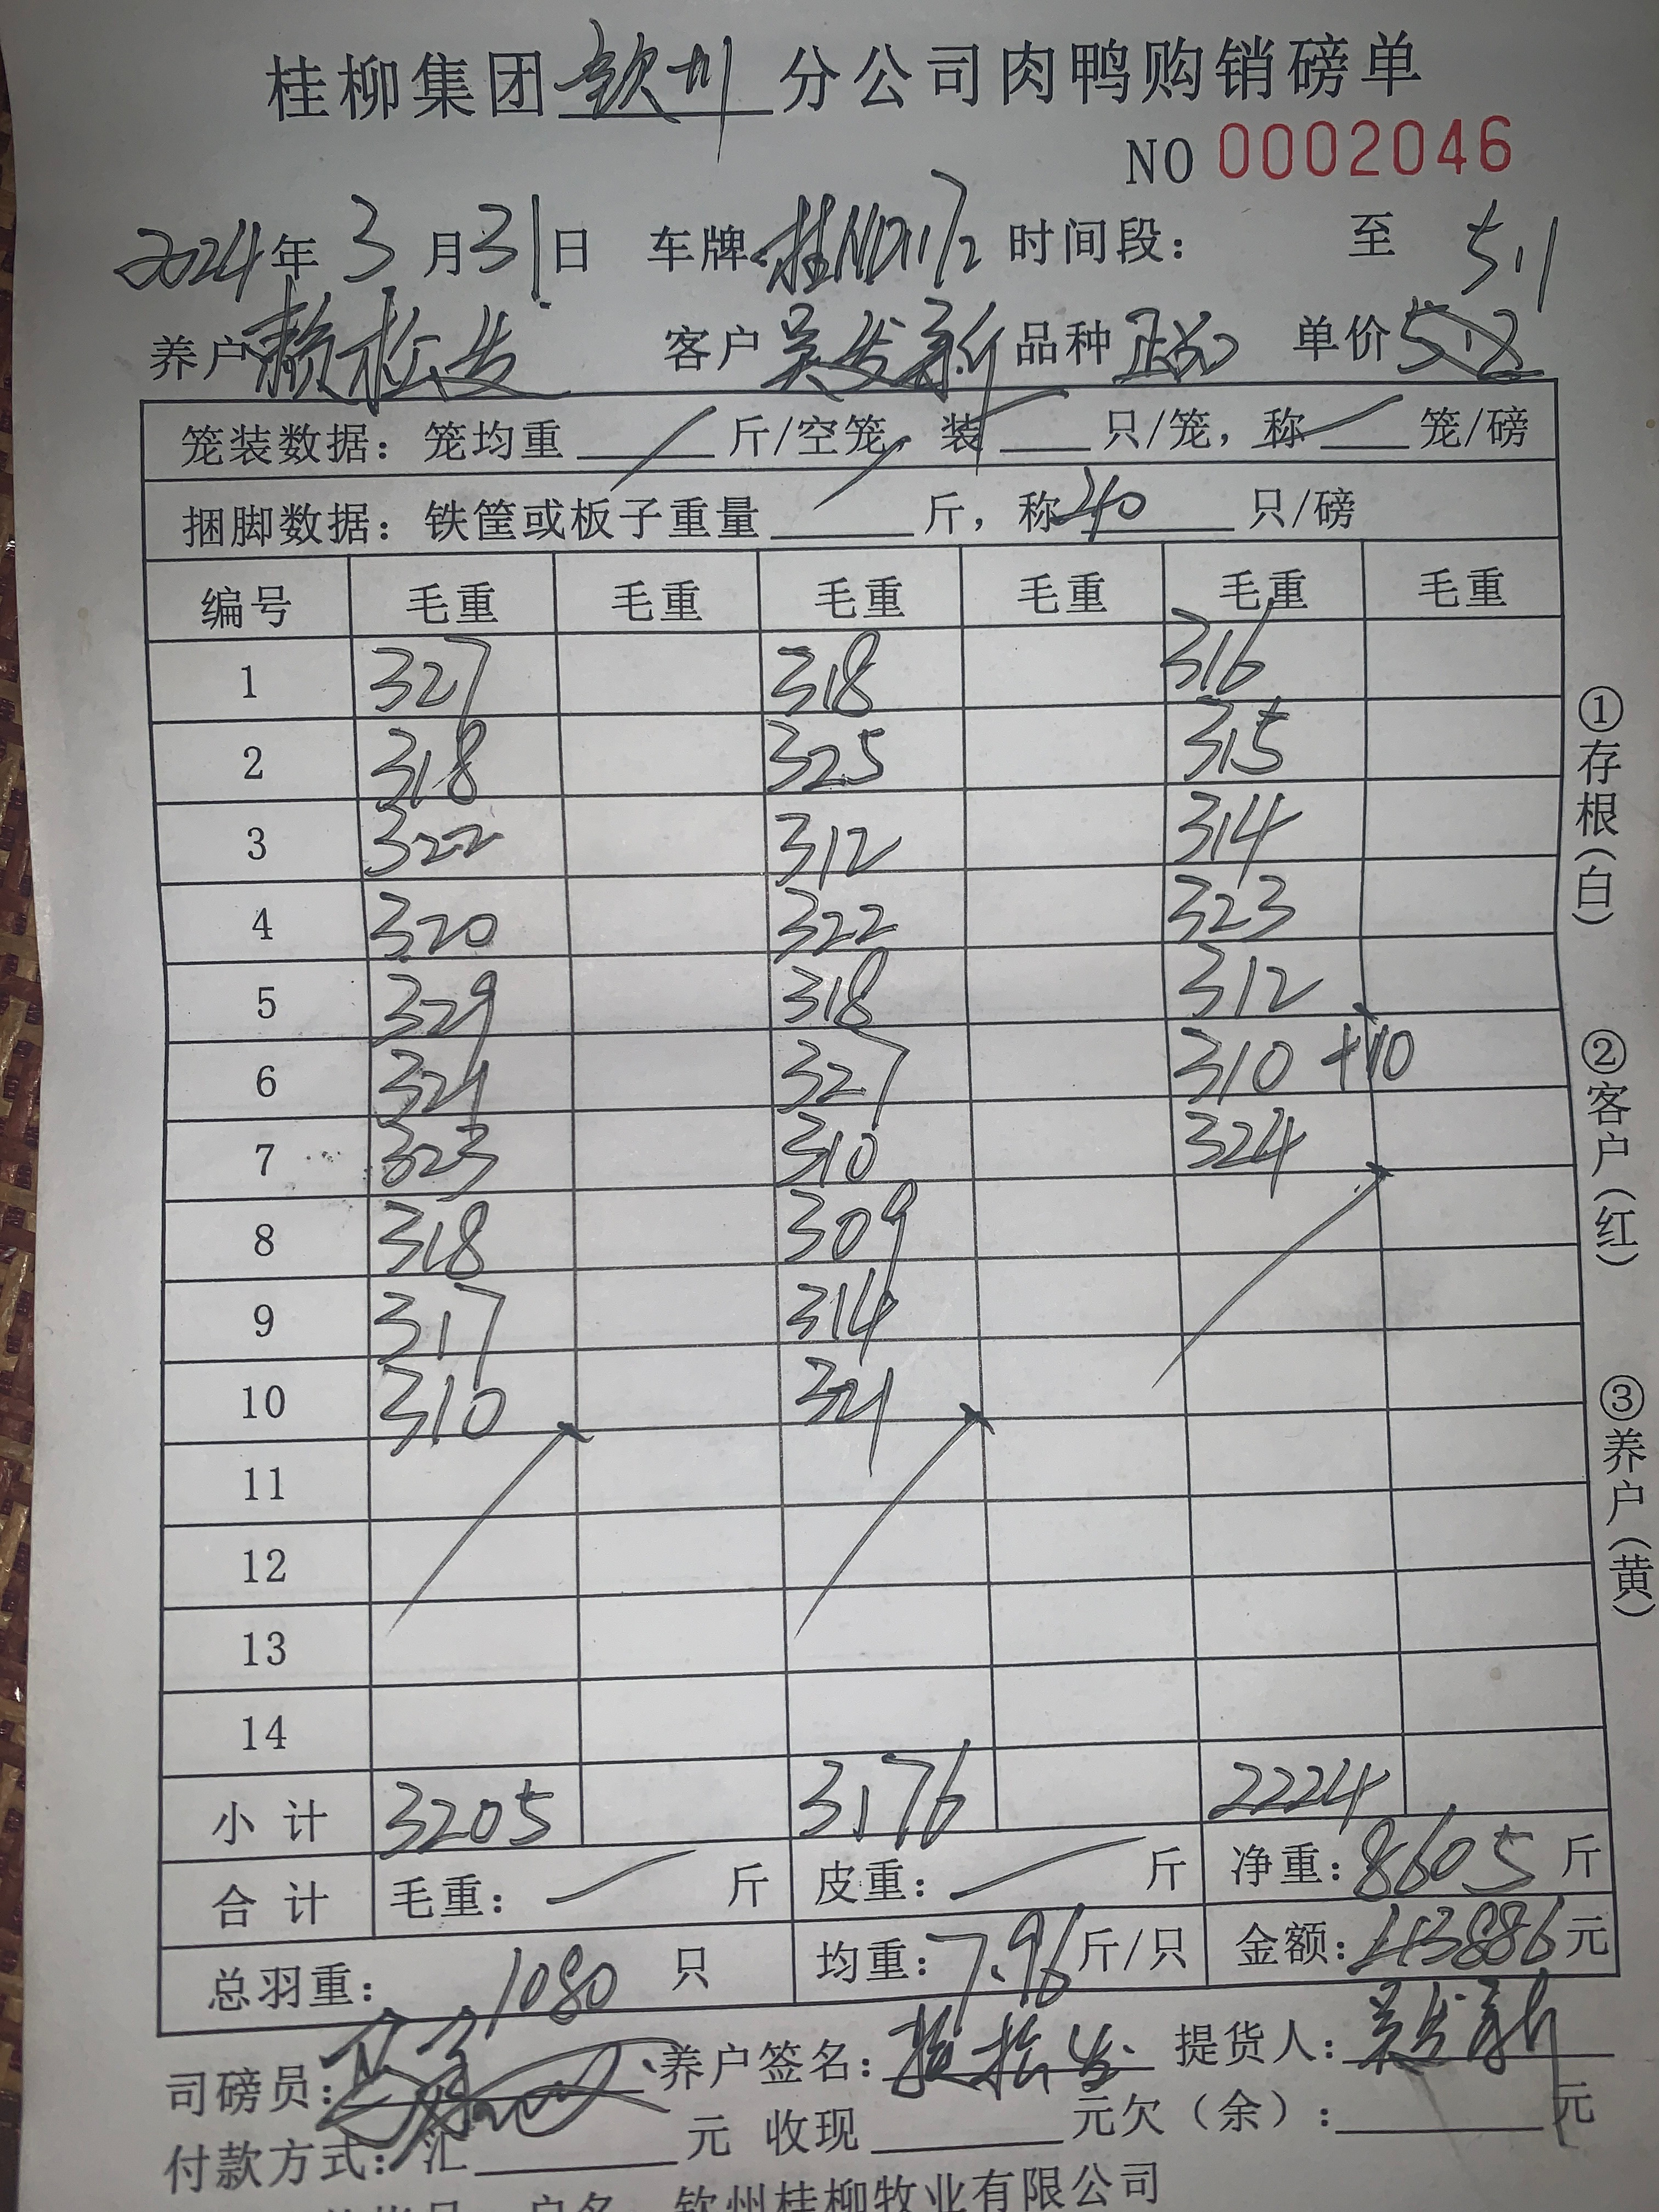 桂柳集团 钦州 分公司肉鸭购销磅单
NO 0002046
2024年 3 月 31 日 车牌: 时间段: 至 5.1
养户 赖松发 客户 吴发新 品种 单价
笼装数据: 笼均重 / 斤/空笼, 装 / 只/笼, 称 / 笼/磅
捆脚数据: 铁筐或板子重量 / 斤, 称 40 只/磅
编号 毛重 毛重 毛重 毛重 毛重 毛重
1 327 318 316
2 318 325 315
3 322 312 314
4 320 322 323
5 329 318 312
6 321 327 310 +10
7 323 310 324
8 318 309
9 317 314
10 310 321
11
12
13
14
小 计 3205 3176 2224
合 计 毛重: / 斤 皮重: / 斤 净重: 8605 斤
总羽重: 1080 只 均重: 7.96 斤/只 金额: 43886 元
司磅员: 养户签名: 赖松发 提货人: 吴发新
付款方式: 汇 元 收现 元欠(余): 元
户名 钦州桂柳牧业有限公司
①存根(白)
②客户(红)
③养户(黄)